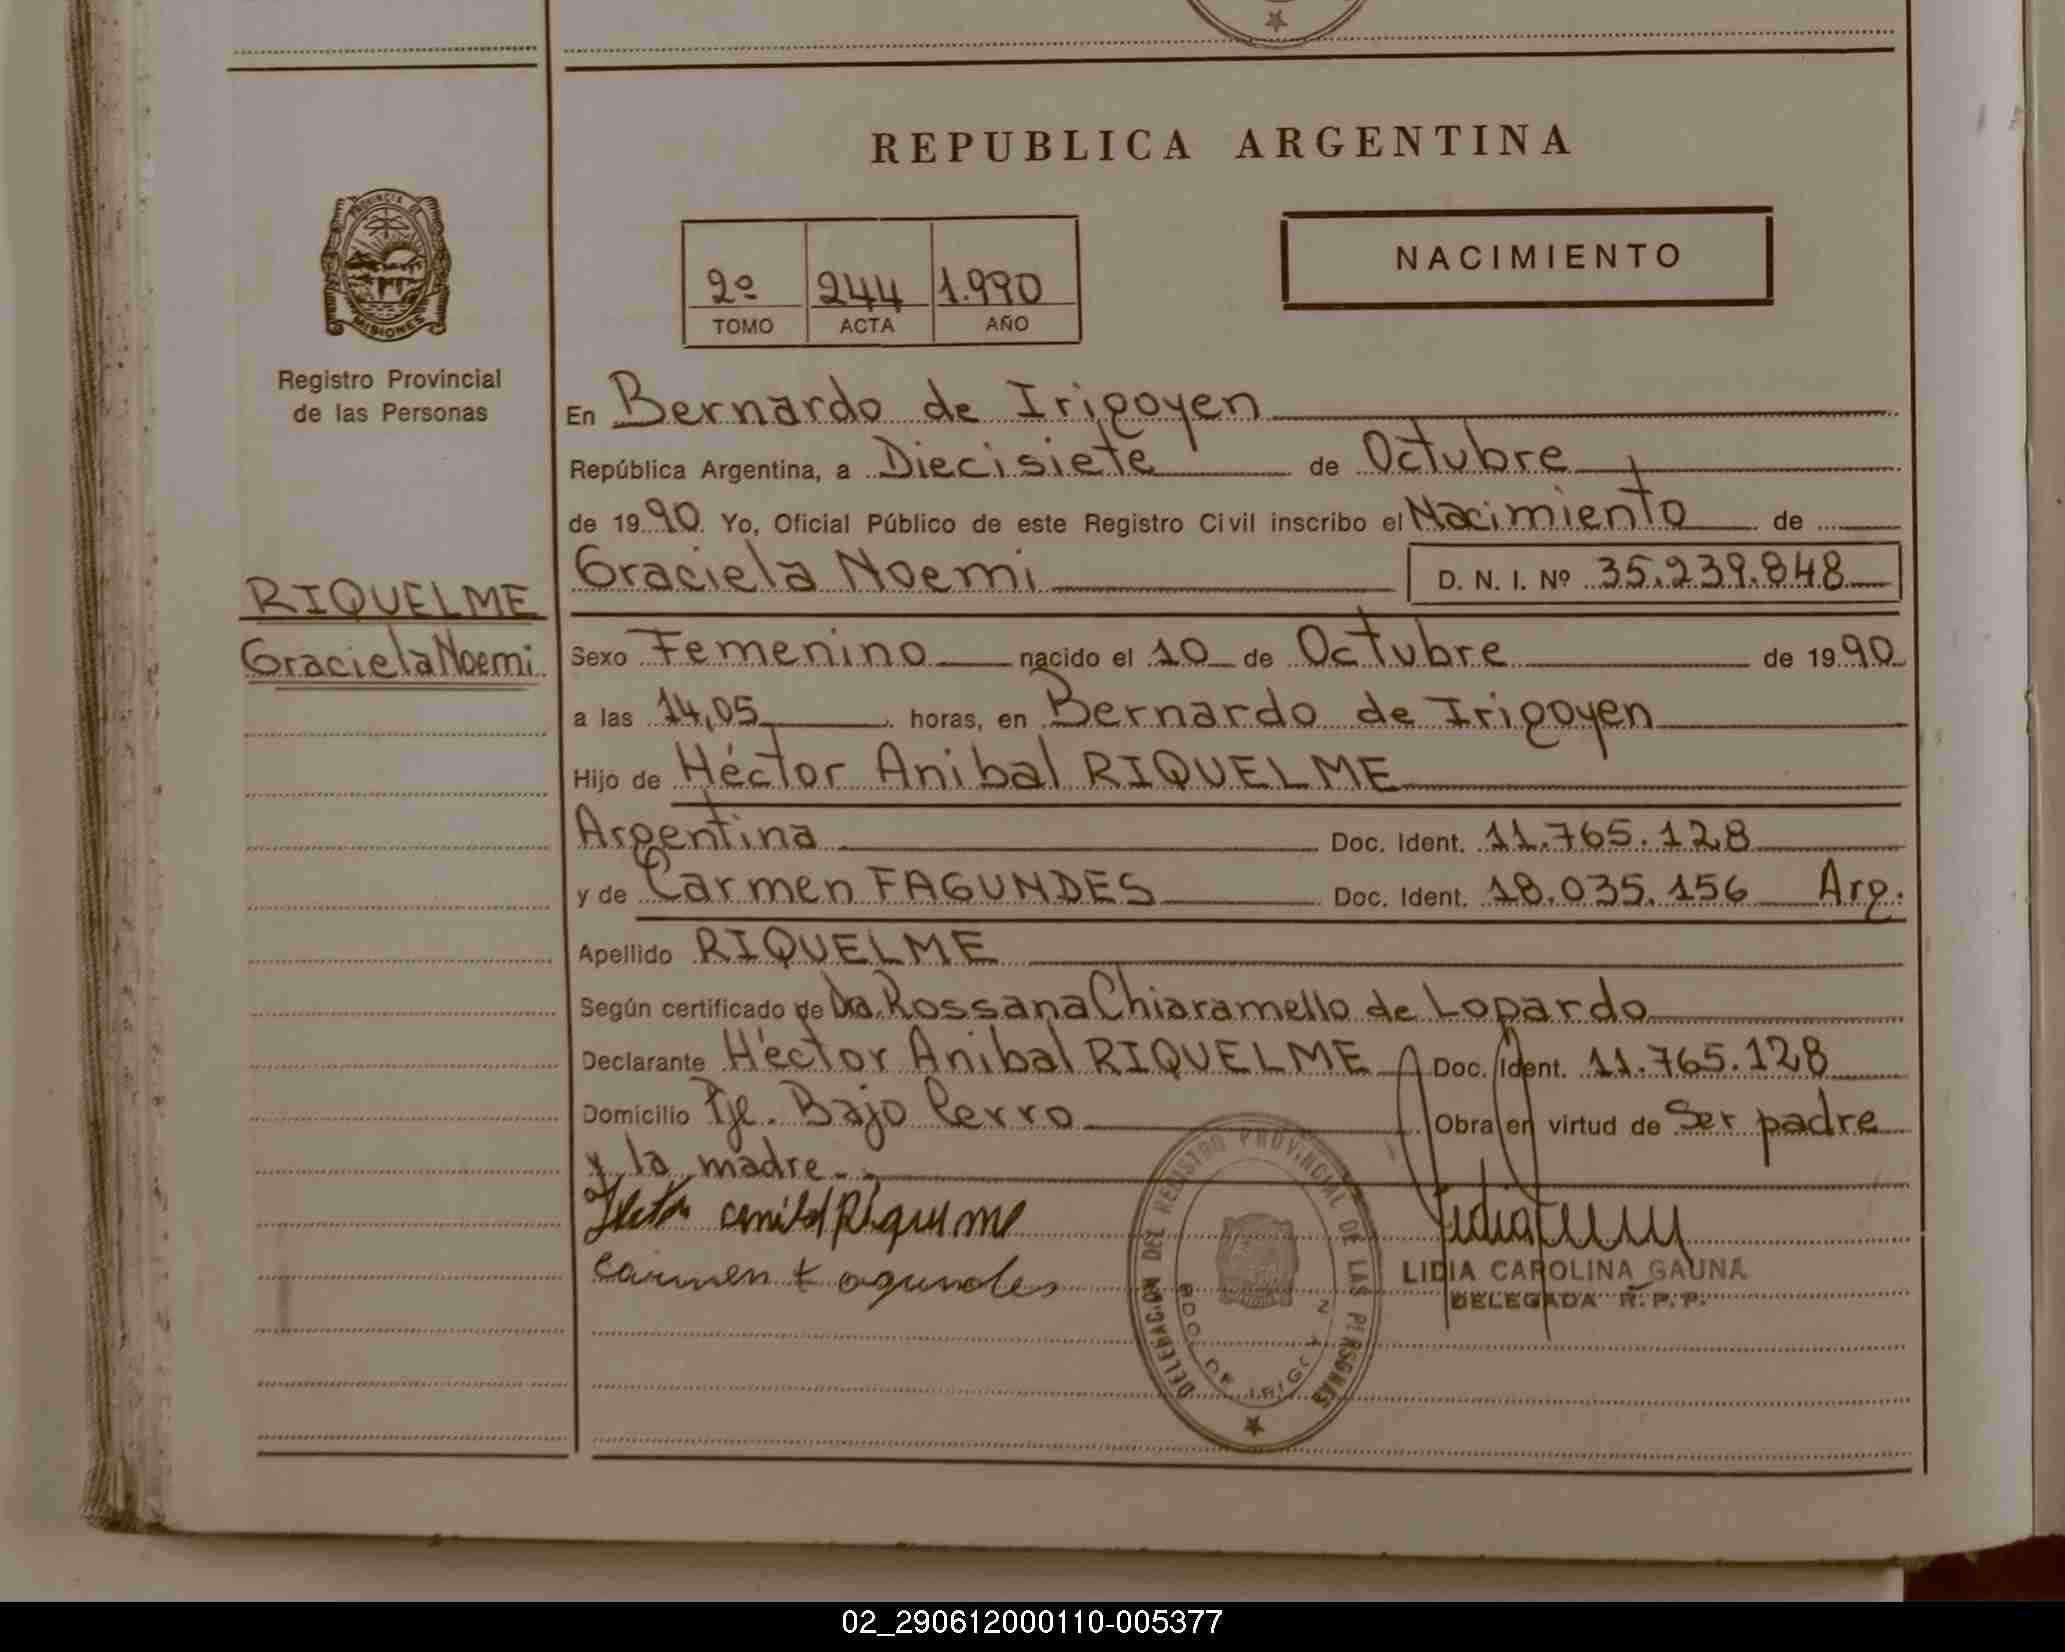 REPUBLICA ARGENTINA
NACIMIENTO
2º 244 1.990
TOMO ACTA AÑO
PROVINCIA DE
MISIONES
Registro Provincial
de las Personas
RIQUELME
Graciela Noemi
En Bernardo de Irigoyen
República Argentina, a Diecisiete de Octubre
de 1990 Yo, Oficial Público de este Registro Civil inscribo el Nacimiento de
Graciela Noemi D. N. I. Nº 35.239.848
Sexo Femenino nacido el 10 de Octubre de 1990
a las 14,05 horas, en Bernardo de Irigoyen
Hijo de Héctor Anibal RIQUELME
Argentina Doc. Ident. 11.765.128
y de Carmen FAGUNDES Doc. Ident. 18.035.156 Arg.
Apellido RIQUELME
Según certificado de Dra. Rossana Chiaramello de Lopardo
Declarante Héctor Anibal RIQUELME Doc. Ident. 11.765.128
Domicilio Pje. Bajo Cerro Obra en virtud de Ser padre
y la madre.-
Carmen Fagundes
DELEGACION DEL REGISTRO PROVINCIAL DE LAS PERSONAS
BDO. DE IRIGOYEN
LIDIA CAROLINA GAUNA
DELEGADA R.P.P.
02_290612000110-005377